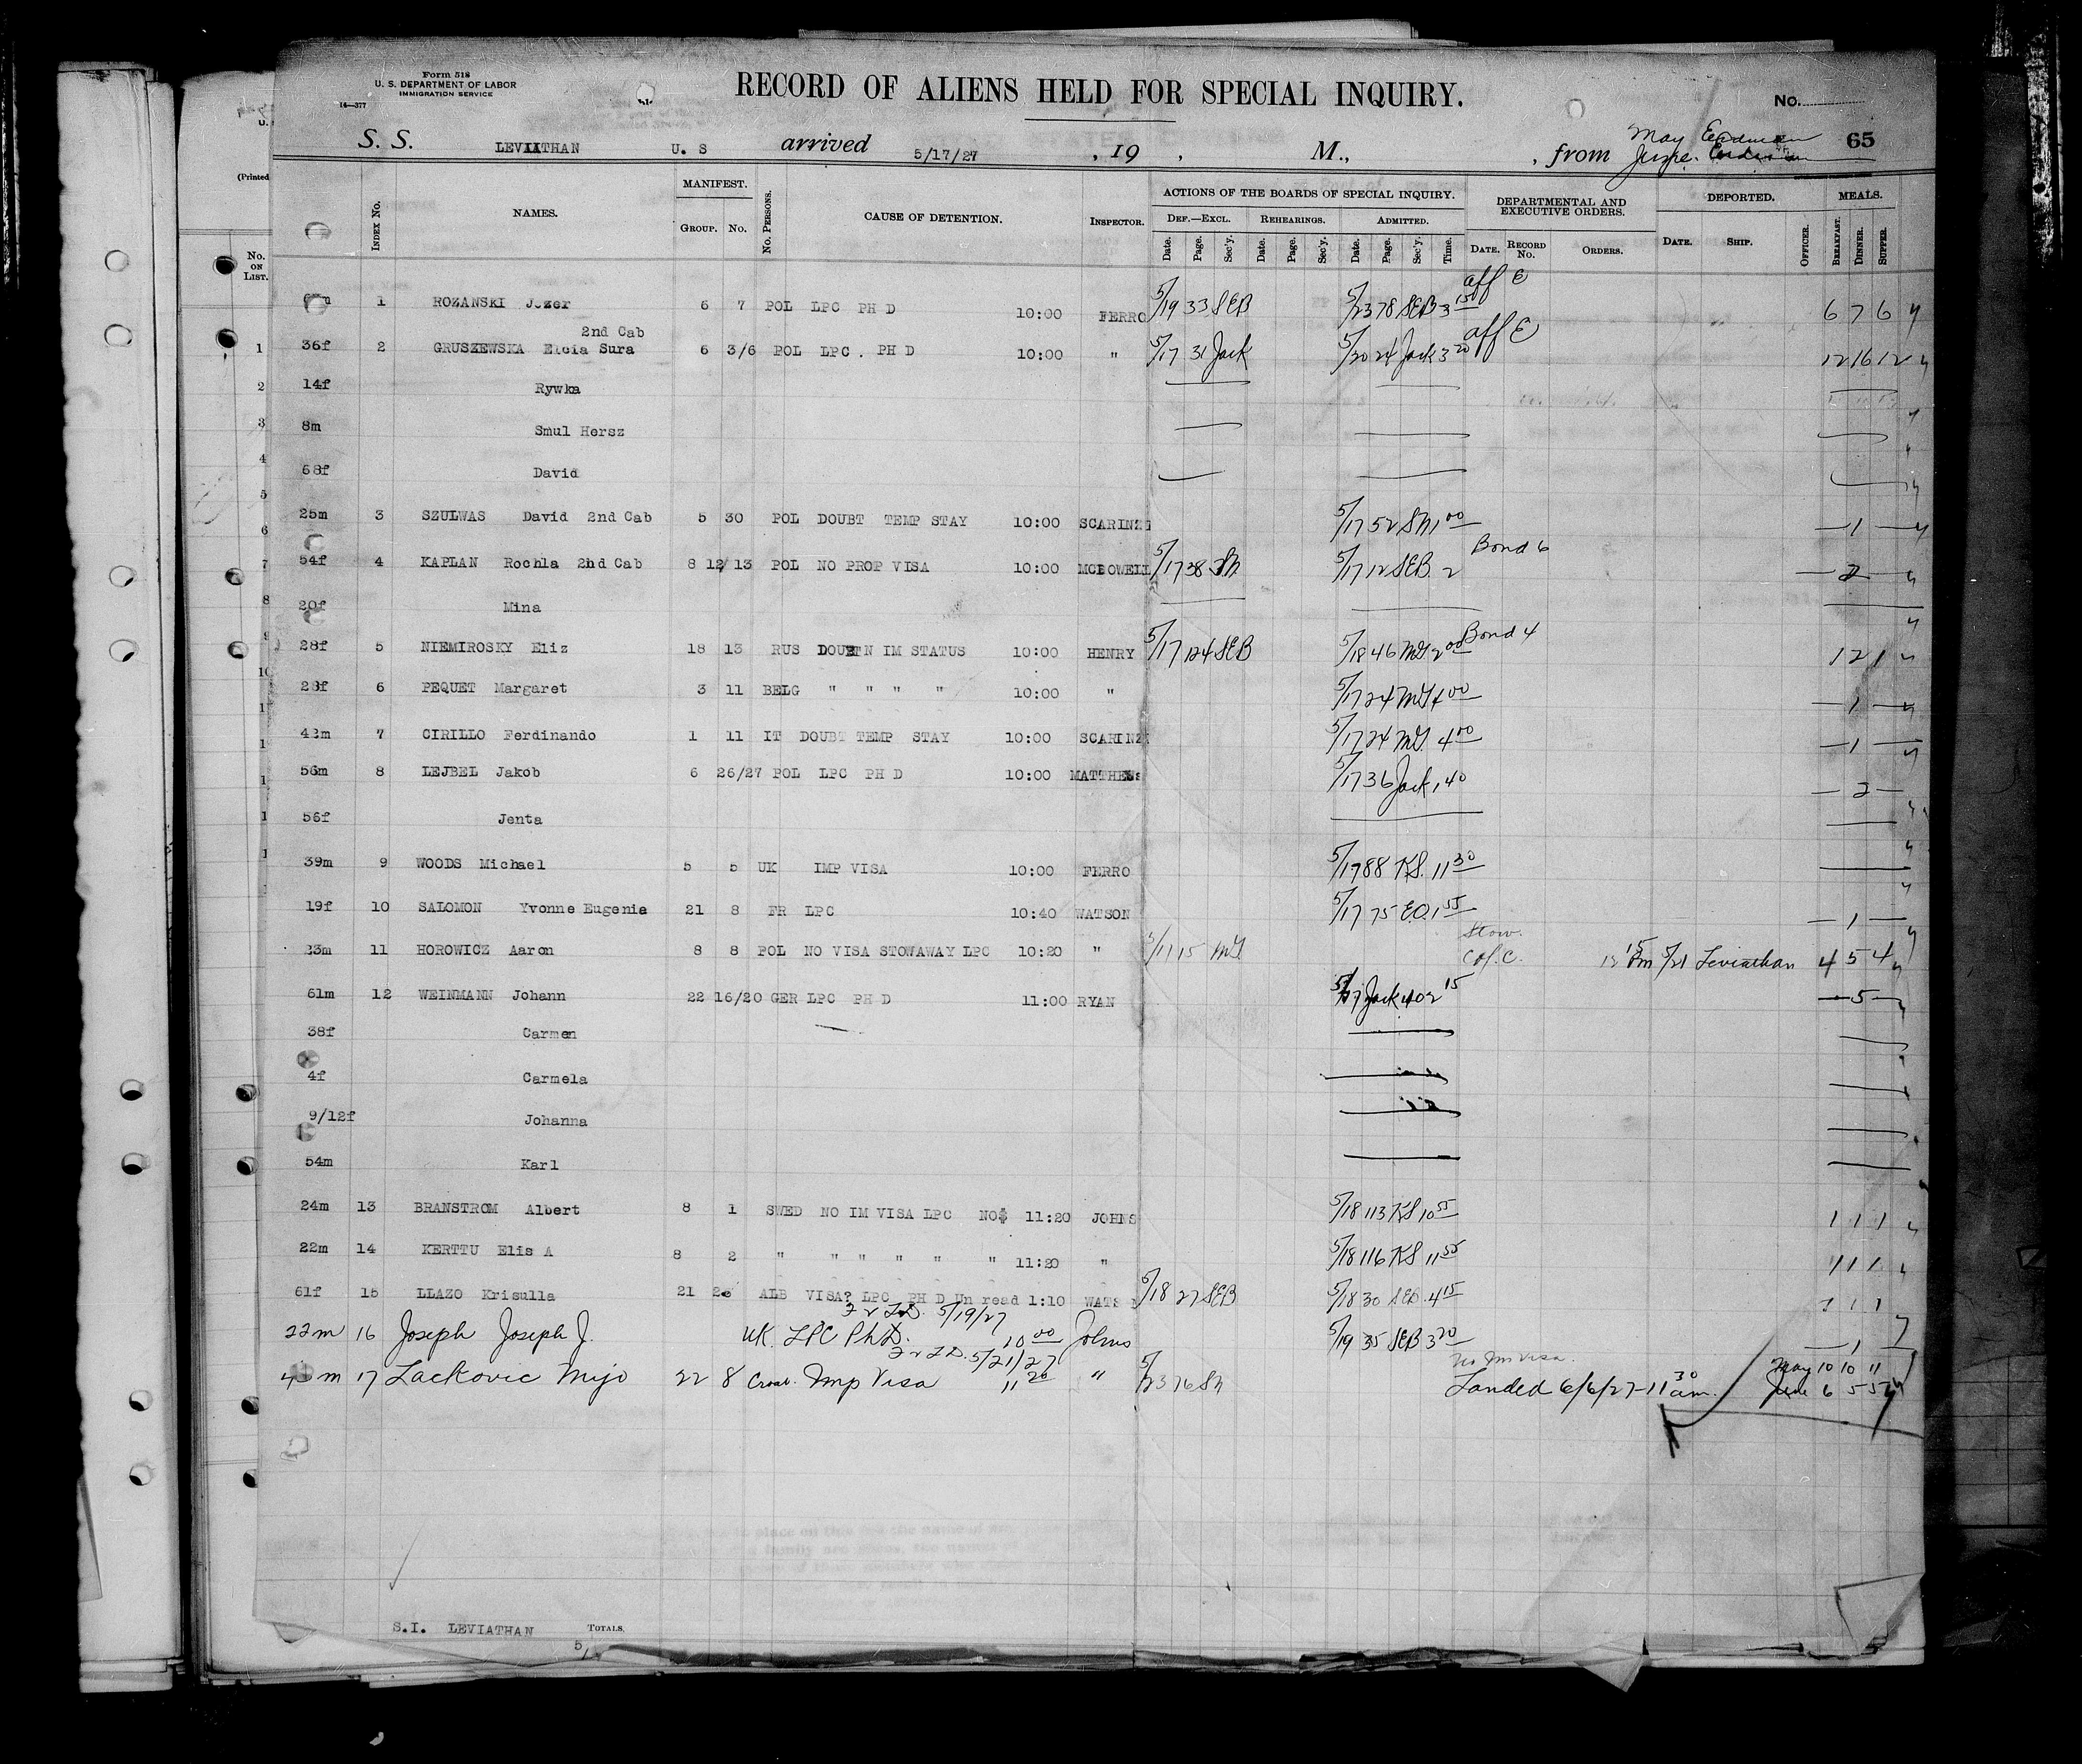 Form 518
U. S. DEPARTMENT OF LABOR
IMMIGRATION SERVICE
14—377
RECORD OF ALIENS HELD FOR SPECIAL INQUIRY.
No.
65
S. S. LEVIATHAN U. S arrived 5/17/27 , 19 , M., , from May
June
(Printed
No. ON LIST.
INDEX No. NAMES. MANIFEST. GROUP. No. No. PERSONS. CAUSE OF DETENTION. INSPECTOR. ACTIONS OF THE BOARDS OF SPECIAL INQUIRY. DEPARTMENTAL AND EXECUTIVE ORDERS. DEPORTED. MEALS.
DEF.—EXCL. REHEARINGS. ADMITTED.
Date. Page. Sec'y. Date. Page. Sec'y. Date. Page. Sec'y. Time. DATE. RECORD No. ORDERS. DATE. SHIP. OFFICER. BREAKFAST. DINNER. SUPPER.
aff E
1 ROZANSKI Jozef 6 7 POL LPC PH D 10:00 FERRO 5/19 33 SEB 5/23 78 SEB 3 6 7 6
2nd Cab aff E
36f 2 GRUSZEWSKA Elcia Sura 6 3/6 POL LPC . PH D 10:00 " 5/17 31 Jack 5/20 24 Jack 3 20 12 16 12
14f Rywka
8m Smul Hersz
68f David
25m 3 SZULWAS David 2nd Cab 5 30 POL DOUBT TEMP STAY 10:00 SCARINZI 5/17 52 SM 1 00 — 1 —
Bond 6
54f 4 KAPLAN Rochla 2nd Cab 8 12/13 POL NO PROP VISA 10:00 MCDOWELL 5/17 38 SM 5/17 12 SEB 2 — 2 —
20f Mina
Bond 4
28f 5 NIEMIROSKY Eliz 18 13 RUS DOUBT N IM STATUS 10:00 HENRY 5/17 124 SEB 5/18 46 MG 2 00 1 2 1
28f 6 PEQUET Margaret 3 11 BELG " " " " 10:00 " 5/17 24 MG 4 00 — 1 —
42m 7 CIRILLO Ferdinando 1 11 IT DOUBT TEMP STAY 10:00 SCARINZI 5/17 24 MG 4 00 — 1 —
56m 8 LEJBEL Jakob 6 26/27 POL LPC PH D 10:00 MATTHEWS 5/17 36 Jack 1 40 — 2 —
56f Jenta
39m 9 WOODS Michael 5 5 UK IMP VISA 10:00 FERRO 5/17 88 KS. 11 30
19f 10 SALOMON Yvonne Eugenie 21 8 FR LPC 10:40 WATSON 5/17 75 E.O. 1 55 — 1 —
Stow.
23m 11 HOROWICZ Aaron 8 8 POL NO VISA STOWAWAY LPC 10:20 " Cof. C. 5/21 Leviathan 4 5 4
61m 12 WEINMANN Johann 22 16/20 GER LPC PH D 11:00 RYAN 5/17 Jack 40 2 15 — 5 —
38f Carmen
4f Carmela
9/12f Johanna
54m Karl
24m 13 BRANSTROM Albert 8 1 SWED NO IM VISA LPC NO$ 11:20 JOHNS 5/18 113 KS 10 55 1 1 1
22m 14 KERTTU Elis A 8 2 " " " " " " 11:20 " 5/18 116 KS 11 55 1 1 1
61f 15 LLAZO Krisulla 21 ALB VISA? LPC PH D Un read 1:10 WATS 5/18 27 SEB 5/18 30 SEB. 4 15 1 1 1
5/19/27
22m 16 Joseph Joseph J. UK. LPC PhD. 10 00 Johns 5/19 35 SEB 3 20 — 1
5/21/27 No Im Visa. May 10 10 11
m 17 Lackovic Mijo 22 8 Croat. Imp Visa 11 20 " 5/23 76 SM Landed 6/6/27-11 30 am. June 6 5 5
S.I. LEVIATHAN TOTALS.
5/